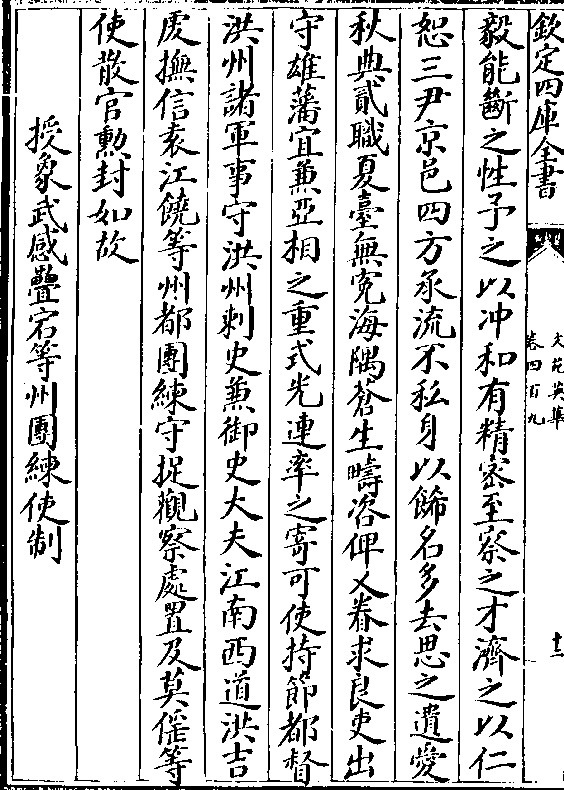 欽定四庫全書
文苑英華
卷四百九
十二
毅能斷之性予之以冲和有精密至察之才濟之以仁
恕三尹京邑四方承流不私身以飾名多去思之遺愛
秋典貳職夏臺無寃海隅蒼生疇咨俾乂眷求良吏出
守雄藩宜兼亞相之重式光連率之寄可使持節都督
洪州諸軍事守洪州刺史兼御史大夫江南西道洪吉
䖍撫信袁江饒等州都團練守捉觀察處置及莫傜等
使散官勲封如故
授象武感疊宕等州團練使制